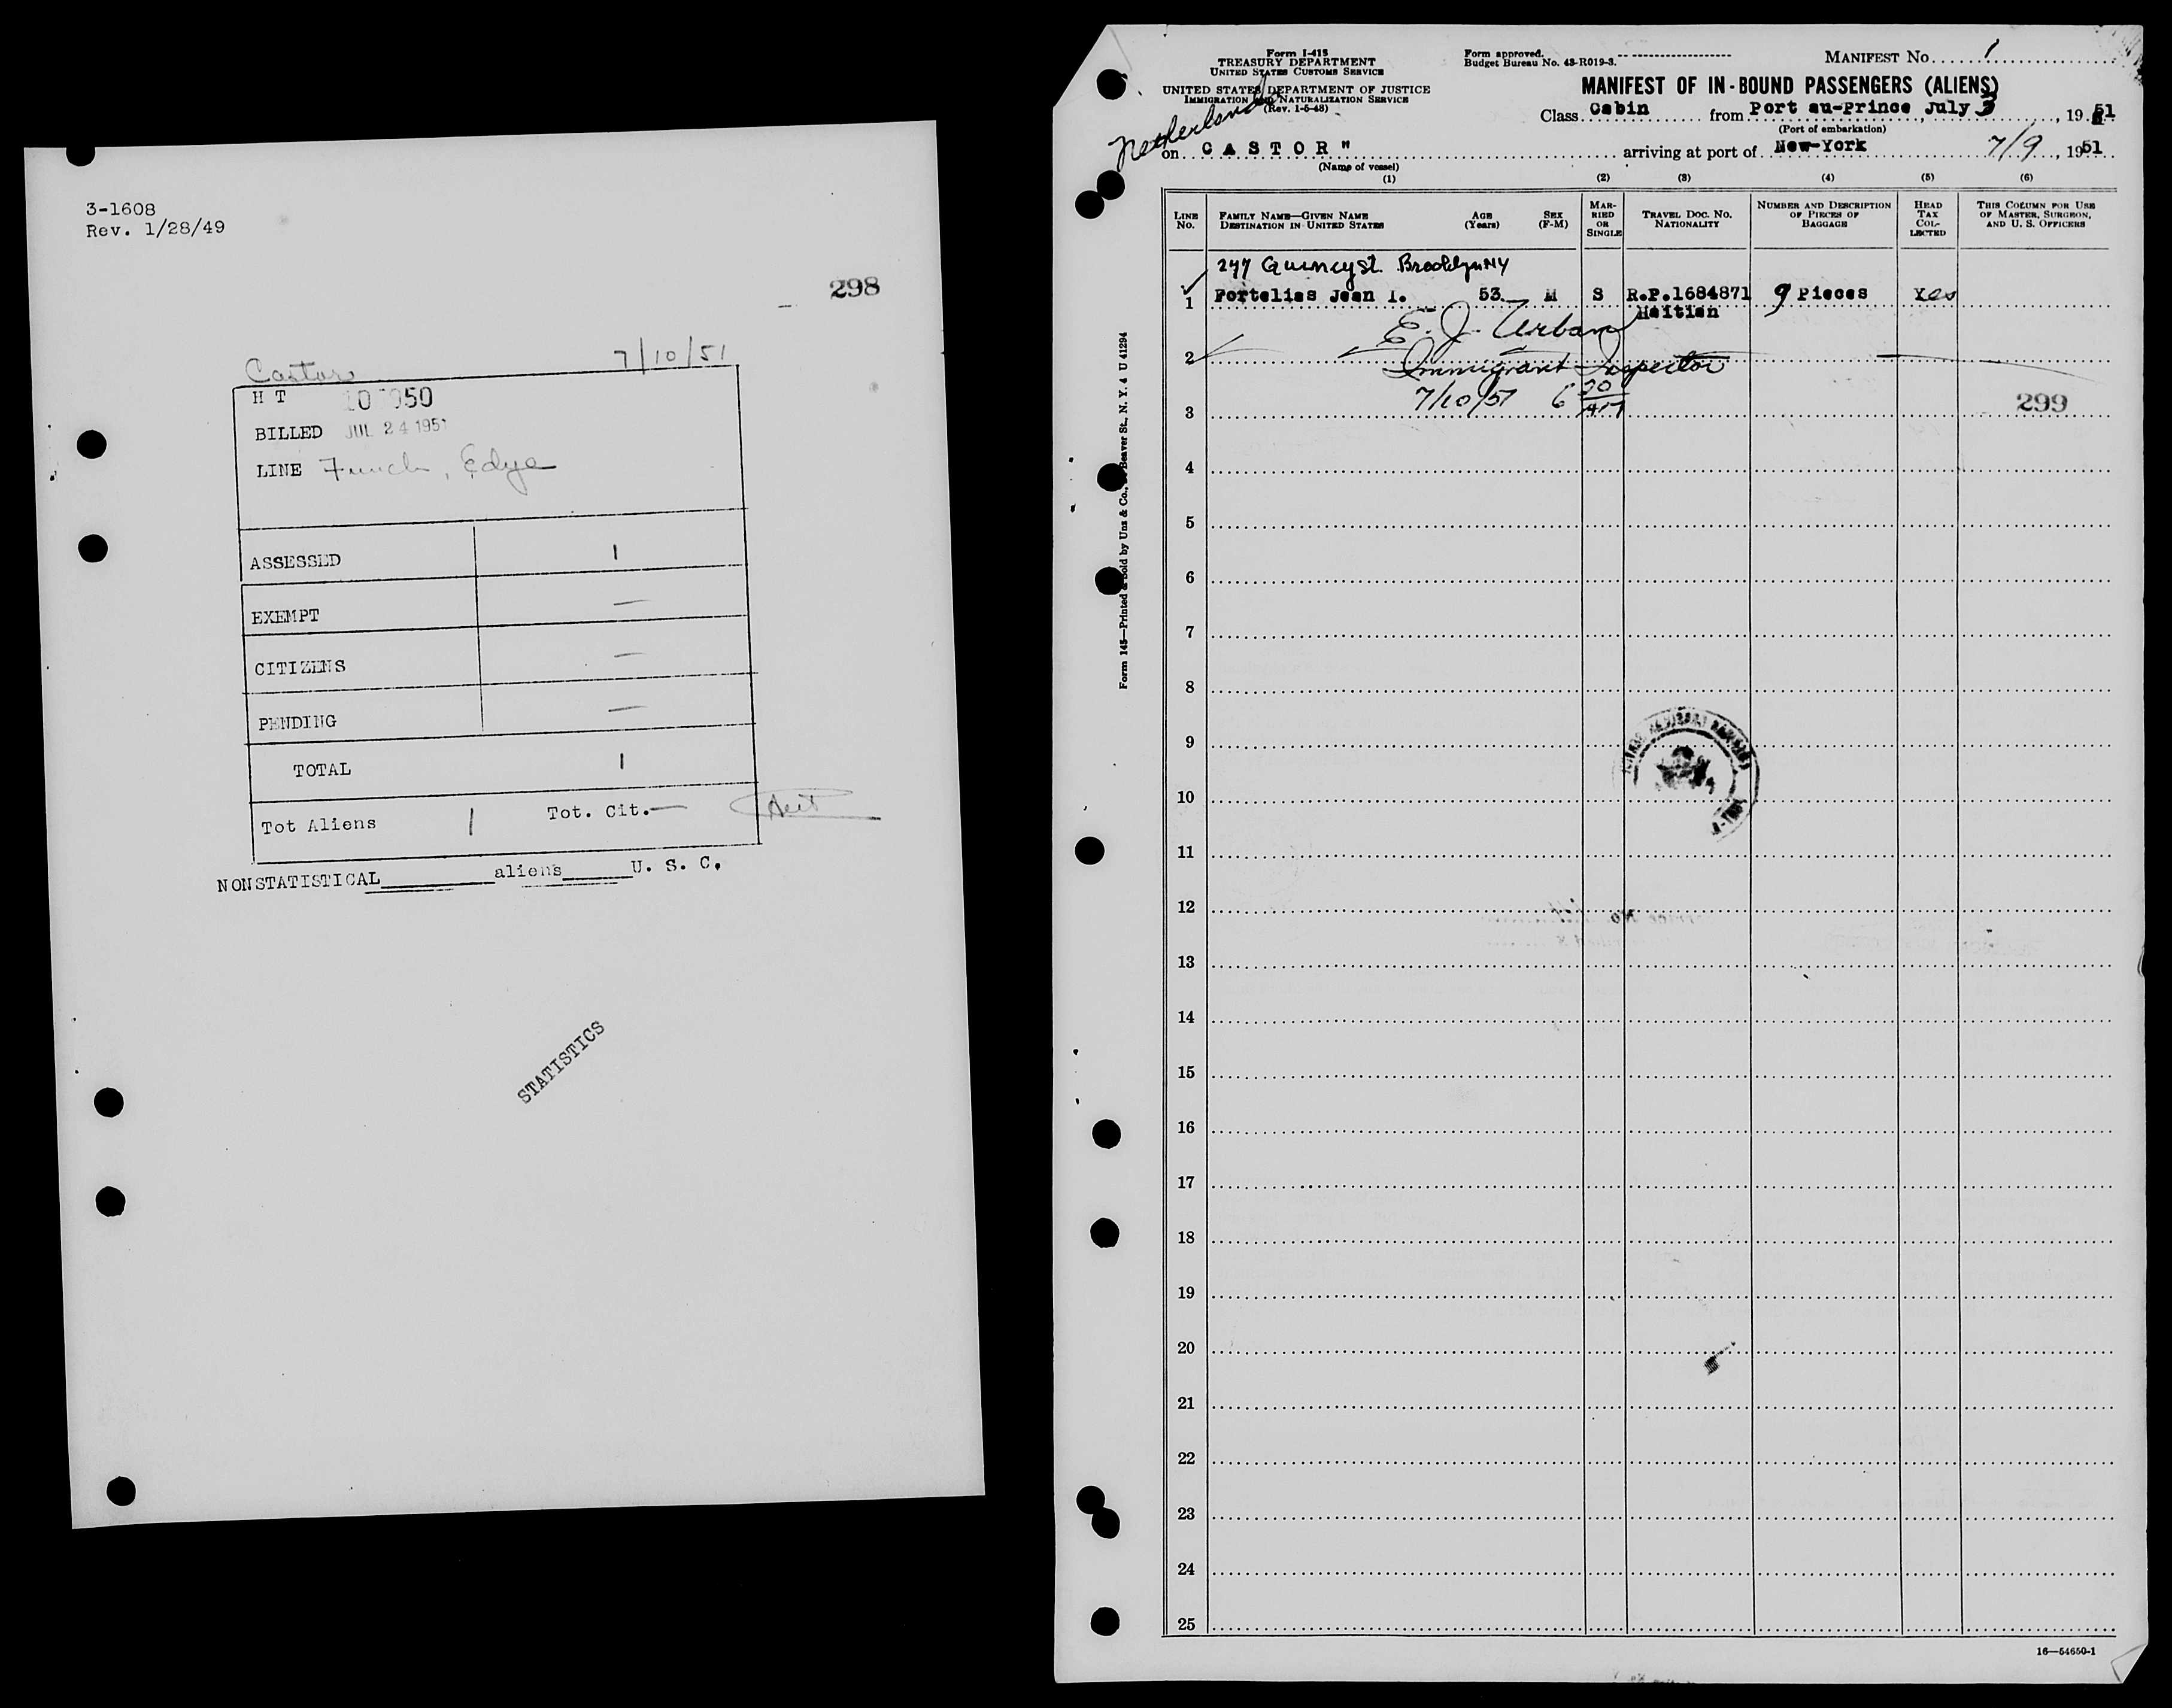 3-1608
Rev. 1/28/49
298
Castor 7/10/51
H T
BILLED JUL 24 1951
LINE Funch, Edye
ASSESSED 1
EXEMPT —
CITIZENS —
PENDING —
TOTAL 1
Tot Aliens 1 Tot. Cit. —
NONSTATISTICAL aliens U. S. C.
STATISTICS
Form I-415
TREASURY DEPARTMENT
UNITED STATES CUSTOMS SERVICE
UNITED STATES DEPARTMENT OF JUSTICE
IMMIGRATION AND NATURALIZATION SERVICE
(Rev. 1-5-48)
Form approved.
Budget Bureau No. 43-R019-3.
MANIFEST No. 1
MANIFEST OF IN-BOUND PASSENGERS (ALIENS)
Class Cabin from Port au-Prince July 3, 1951
(Port of embarkation)
Netherland
on CASTOR" arriving at port of New-York 7/9, 1951
(Name of vessel)
(1) (2) (3) (4) (5) (6)
LINE No.
FAMILY NAME—GIVEN NAME
DESTINATION IN UNITED STATES
AGE (Years)
SEX (F-M)
MARRIED OR SINGLE
TRAVEL DOC. NO.
NATIONALITY
NUMBER AND DESCRIPTION OF PIECES OF BAGGAGE
HEAD TAX COLLECTED
THIS COLUMN FOR USE OF MASTER, SURGEON, AND U. S. OFFICERS
277 Quincy St. Brooklyn NY
1 Fortelias Jean I. 53 M S R.P.1684871 9 Pieces Yes
Haitian
E. J. Urban
2 Immigrant Inspector
3 7/10/51 6 30 AM 299
4
5
6
7
8
9
10
11
12
13
14
15
16
17
18
19
20
21
22
23
24
25
Form 145—Printed & Sold by Unz & Co., Beaver St., N. Y. 4 U 41294
16—54650-1